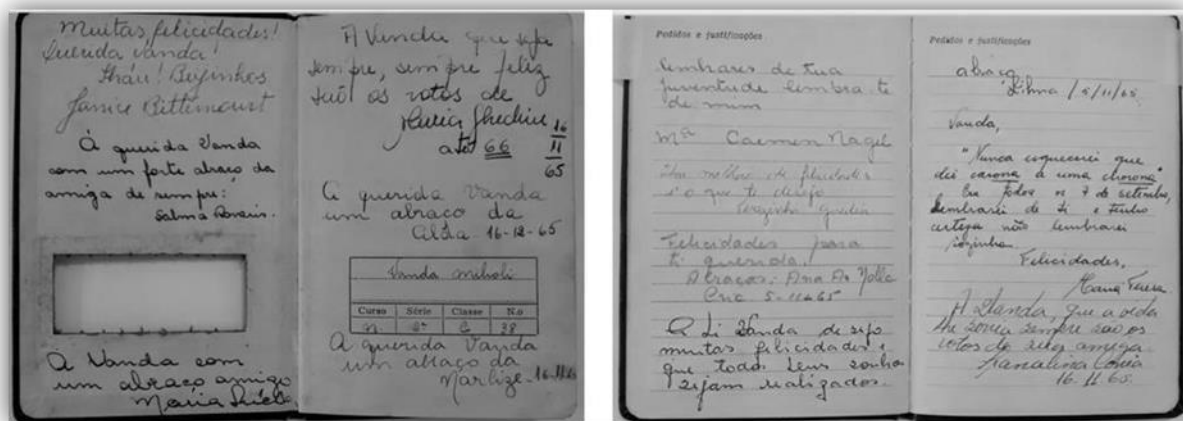 Muitas felicidades!
Querida Vanda!
Tháu! Beijinhos
Janice Bittencourt
À querida Vanda
com um forte abraço da
amiga de sempre:
Salma
À Vanda com
um abraço amigo
Maria Lúcia
A Vanda que seja
sempre, sempre feliz
são os votos de
Maria
até 66
16
11
65
A querida Vanda
um abraço da
Alda 16-12-65
Vanda
Curso Série Classe N.o
38
A querida Vanda
um abraço da
Marlize 16-11-65
Pedidos e justificações
lembrares de tua
juventude lembra-te
de mim
Mª Carmen Nagel
Um milhão de felicidades
é o que te desejo
Terezinha
Felicidades para
ti querida.
Abraços, Ana
Cric 5-11-65
A ti Vanda desejo
muitas felicidades e
que todos teus sonhos
sejam realizados.
Pedidos e justificações
abraço
Vilma /5/11/65.
Vanda,
"Nunca esquecerei que
dei carona a uma chorona"
Em todos os 7 de setembro,
lembrarei de ti e tenho
certeza não lembrarei
sozinha.
Felicidades,
Maria Teresa
A Vanda, que a vida
lhe sorria sempre são os
votos da amiga
16.11.65.